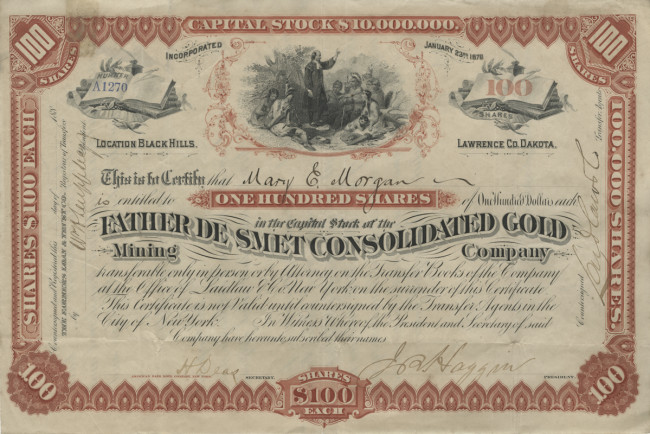 CAPITAL STOCK $10,000,000.
100
SHARES
100
SHARES
INCORPORATED
JANUARY 23RD 1878
NUMBER
A1270
100
SHARES
LOCATION BLACK HILLS.
LAWRENCE CO. DAKOTA.
This is to Certify that Mary E. Morgan
is entitled to ONE HUNDRED SHARES of One Hundred Dollars each
in the Capital Stock of the
FATHER DE SMET CONSOLIDATED GOLD
Mining Company
transferable only in person or by Attorney on the Transfer Books of the Company
at the Office of Laidlaw & Co New York on the surrender of this Certificate
This Certificate is not Valid until countersigned by the Transfer Agents in the
City of New York. In Witness Whereof, the President and Secretary of said
Company have hereunto subscribed their names.
H. Deas SECRETARY.
J. B. Haggin PRESIDENT.
100
SHARES
$100
EACH
100
SHARES $100 EACH
100,000 SHARES.
Countersigned and Registered this day of 188
THE FARMER'S LOAN & TRUST CO. Registrar of Transfers
by
Countersigned
Transfer Agents